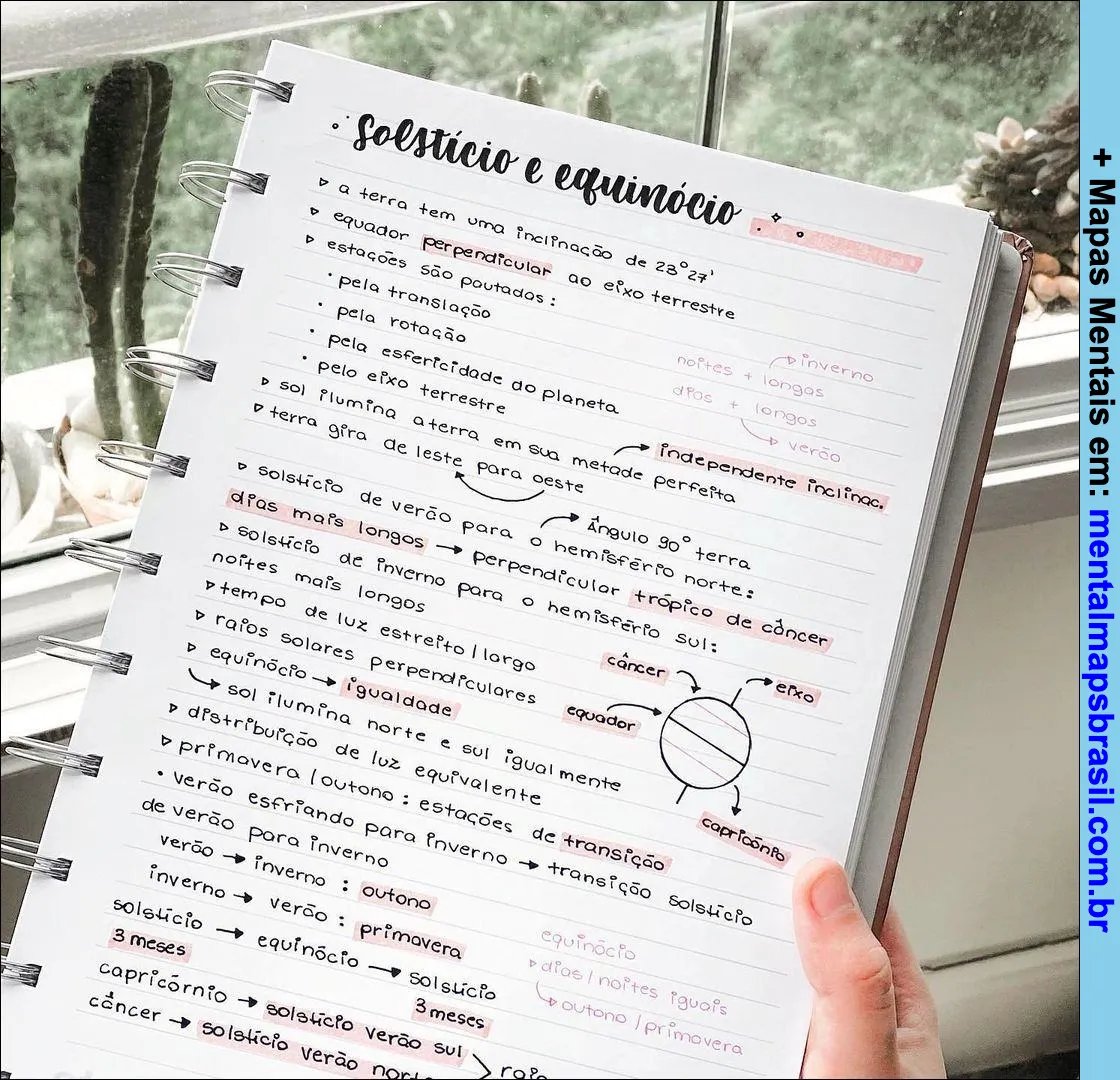 solstício e equinócio
▹ a terra tem uma inclinação de 23°27'
▹ equador perpendicular ao eixo terrestre
▹ estações são pautadas:
• pela translação
• pela rotação
• pela esfericidade do planeta
• pelo eixo terrestre
noites + longas → inverno
dias + longos → verão
▹ sol ilumina a terra em sua metade perfeita → independente inclinac.
▹ terra gira de leste para oeste
▹ solstício de verão para o hemisfério norte:
→ Ângulo 90° terra
dias mais longos → perpendicular trópico de câncer
▹ solstício de inverno para o hemisfério sul:
noites mais longos
▹ tempo de luz estreito/largo
▹ raios solares perpendiculares
▹ equinócio → igualdade
↳ sol ilumina norte e sul igualmente
▹ distribuição de luz equivalente
▹ primavera/outono: estações de transição
• verão esfriando para inverno → transição solstício
de verão para inverno
câncer
eixo
equador
capricónio
verão → inverno : outono
inverno → verão : primavera
solstício → equinócio → solsício
3 meses
3 meses
capricórnio → solstício verão sul
câncer → solstício verão nort
raio
equinócio
▹ dias/noites iguais
↳ outono/primavera
+ Mapas Mentais em: mentalmapsbrasil.com.br